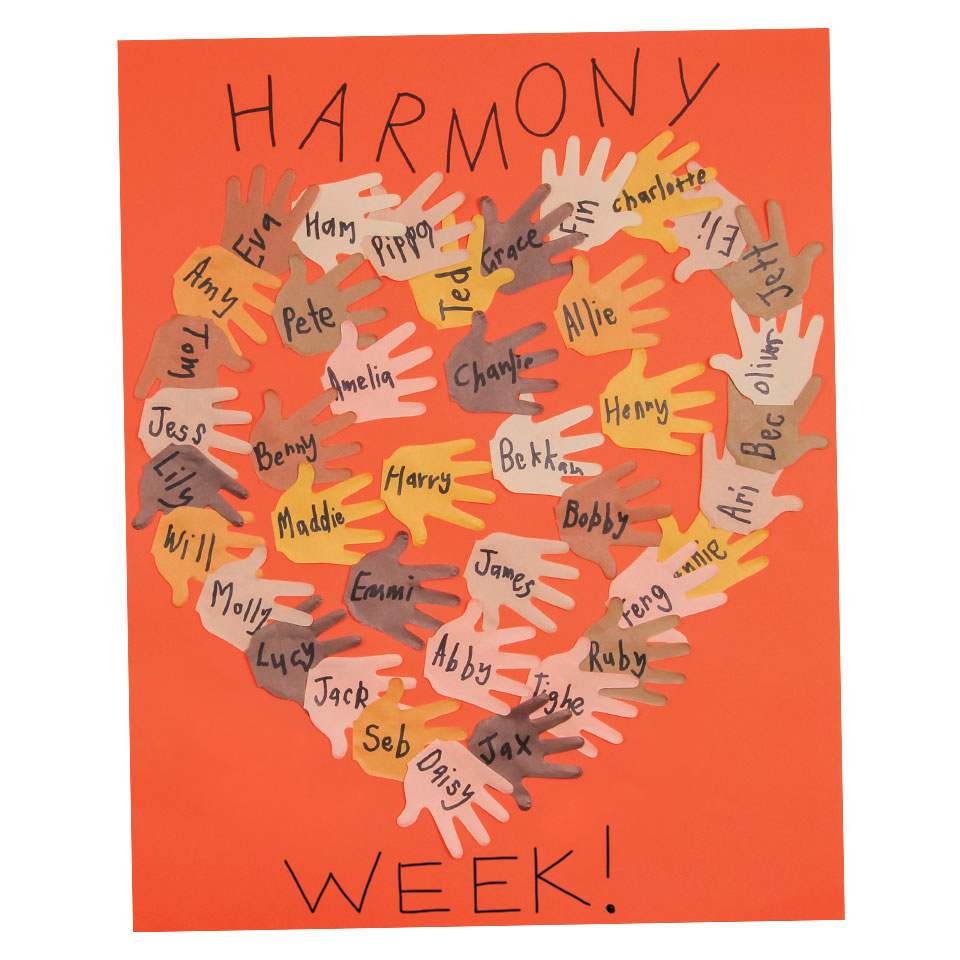 HARMONY
charlotte
Fin
Eva
Ham
Pippa
Grace
Eli
Jett
Amy
Ted
Pete
Allie
Tom
Amelia
Charlie
oliver
Jess
Henry
Bec
Benny
Bekkan
Lily
Harry
Ari
Maddie
Bobby
Will
James
Emmi
Molly
Lucy
Abby
Ruby
Jack
Tighe
Seb
Jax
Daisy
WEEK!